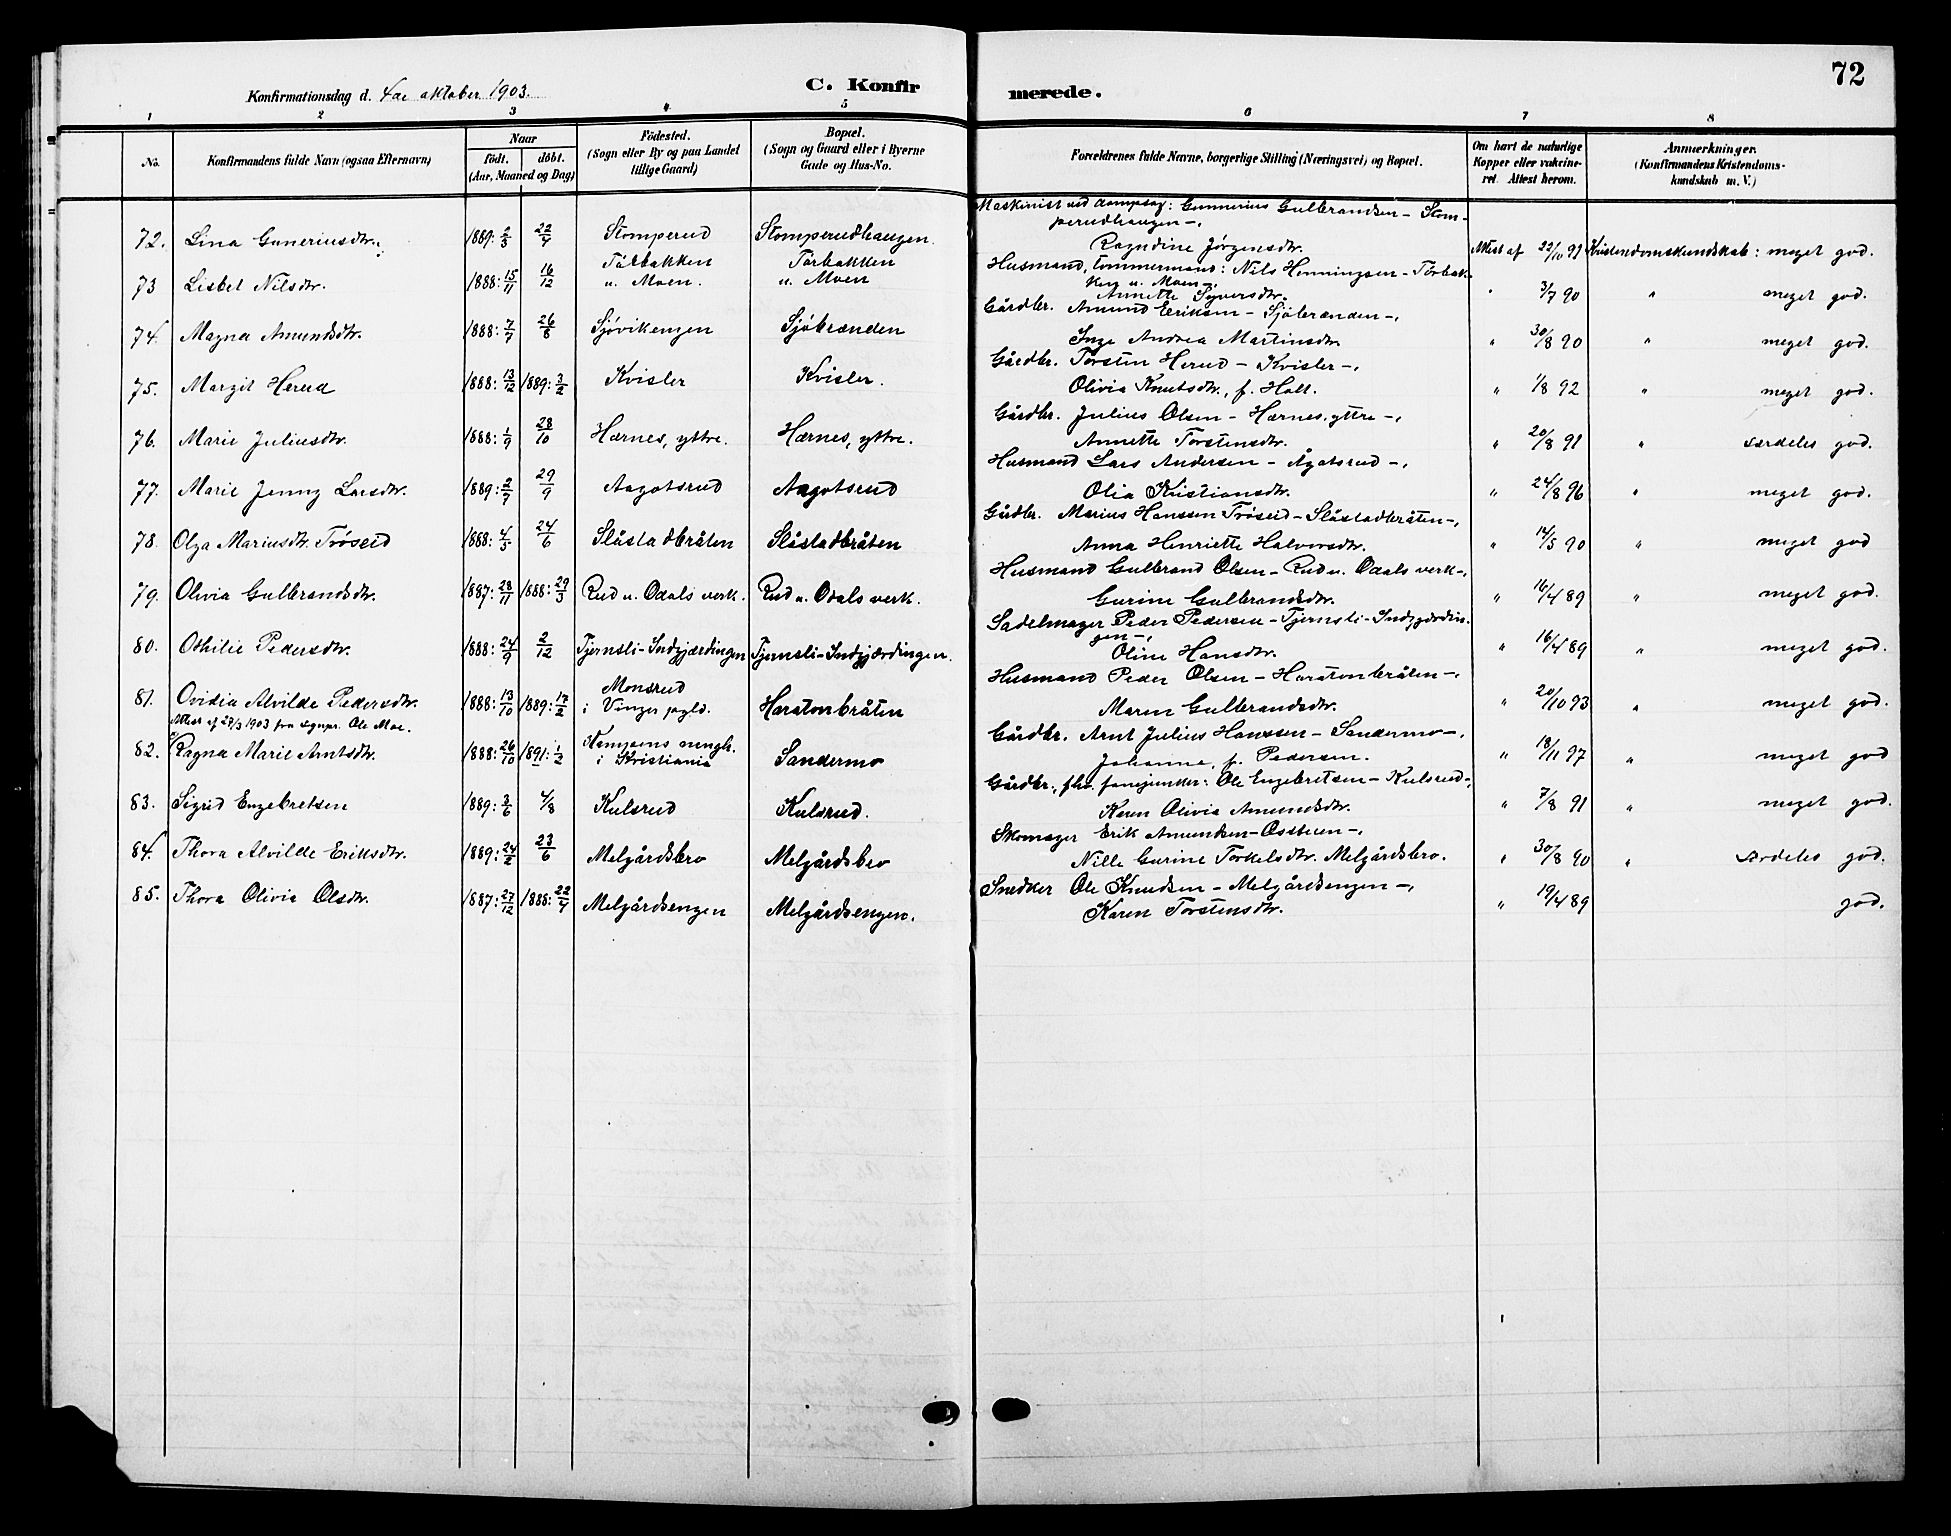 72
Konfirmationsdag d. 4de oktober 1903.
C. Konfirmerede.
1 2 3 4 5 6 7 8
No.
Konfirmandens fulde Navn (ogsaa Efternavn)
Naar
födt. döbt.
(Aar, Maaned og Dag)
Födested.
(Sogn eller By og paa Landet
tillige Gaard)
Bopæl.
(Sogn og Gaard eller i Byerne
Gade og Hus-No.
Forældrenes fulde Navne, borgerlige Stilling (Næringsvei) og Bopæl.
Om havt de naturlige
Kopper eller vakcine-
ret. Attest herom.
Anmærkninger.
(Konfirmandens Kristendoms-
kundskab m. V.)
72. Lina Guneriusdtr. 1889: 2/3 22/4 Stomperud Stomperudhaugen.
Maskinist ved dampsag: Gunnerius Gulbrandsen - Stom-
perudhaugen -,
Ragndine Jörgensdtr. Attest af 22/10 91 Kristendomskundskab: meget god.
73 Lisbet Nilsdtr. 1888: 15/11 16/12 Torbakken u. Moen. Torbakken u. Moen
Husmand, tömmermand: Nils Henningsen - Torbak-
ken u. Moen -,
Annette Syversdtr. " 3/7 90 " meget god.
74. Magna Amundsdtr. 1888: 7/7 26/8 Sjövikengen Sjöbrænden
Gårdbr. Amund Eriksen - Sjöbrænden -,
Inge Andrea Martinsdtr. " 30/8 90 " meget god.
75. Margit Herud 1888: 13/12 1889: 3/2 Kvisler Kvisler.
Gårdbr. Torsten Herud - Kvisler -,
Olivia Knutsdtr., f. Holt. " 1/8 92 " meget god.
76. Marie Juliusdtr. 1888: 1/9 28/10 Hærnes, yttre. Hærnes, yttre.
Gårdbr. Julius Olsen - Hærnes, yttre -,
Annette Torstensdtr. " 20/8 91 " særdeles god.
77. Marie Jenny Larsdtr. 1889: 2/7 29/9 Aagotsrud Aagotsrud
Husmand Lars Andersen - Ågotsrud -,
Olia Kristiansdtr. " 24/8 96 " meget god.
78. Olga Mariusdtr. Tröseid 1888: 4/5 24/6 Slåstadbråten Slåstadbråten
Gårdbr. Marius Hanssen Tröseid - Slåstadbråten -,
Anna Henriette Halvorsdtr. " 14/5 90 " meget god
79. Olivia Gulbrandsdtr. 1887: 28/11 1888: 29/3 Rud u. Odals verk. Rud u. Odals verk.
Husmand Gulbrand Olsen - Rud u. Odals verk -,
Gurine Gulbrandsdtr. " 16/4 89 " meget god.
80. Othilie Pedersdtr. 1888: 24/9 2/12 Tjernsli-Indgjærdingen Tjernsli-Indgjærdingen.
Sadelmager Peder Pedersen - Tjernsli-Indgjærdin-
gen -,
Oline Hansdtr. " 16/4 89 " meget god.
81. Ovidia Alvilde Pedersdtr. 1888: 13/10 1889: 17/2 Monsrud i Vinger pgld. Haratonbråten
Attest af 27/3 1903 fra sognpr. Ole Moe.
Husmand Peder Olsen - Haratonbråten -,
Maren Gulbrandsdtr. " 20/10 93 " meget god.
82. Ragna Marie Arntsdtr. 1888: 26/10 1891: 1/2 Kampens mngh. i Kristiania Sandermo
Gårdbr. Arnt Julius Hanssen - Sandermo -,
Johanne, f. Pedersen. " 18/11 97 " meget god
83. Sigrid Engebretsen 1889: 3/6 4/8 Kulsrud Kulsrud.
Gårdbr., fhv. fanejunker: Ole Engebretsen - Kulsrud -,
Karen Olivia Amundsdtr. " 7/8 91 " meget god.
84. Thora Alvilde Eriksdtr. 1889: 24/2 23/6 Melgårdsbro Melgårdsbro
Skomager Erik Amundsen - Ossteen -,
Nille Gurine Torkelsdtr. Melgårdsbro. " 30/8 90 " særdeles god.
85. Thora Olivia Olsdtr. 1887: 27/12 1888: 22/4 Melgårdsengen Melgårdsengen.
Snedker Ole Knudsen - Melgårdsengen -,
Karen Torstensdtr. " 19/4 89 god.